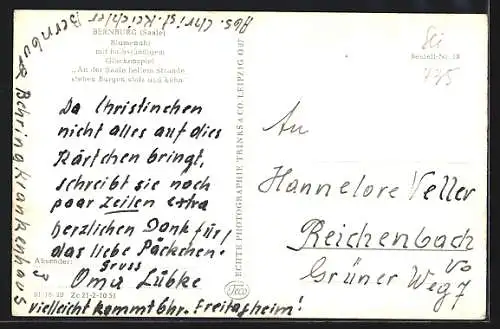 Abs. Christ. Reichler
Bernburg
Behringkrankenhaus
BERNBURG (Saale)
Blumenuhr
mit halbstündigem
Glockenspiel
„An der Saale hellem Strande
stehen Burgen stolz und kühn"
Da Christinchen
nicht alles auf dies
Kärtchen bringt,
schreibt sie noch
paar Zeilen extra
herzlichen Dank für
das liebe Päckchen!
Gruss
Absender:
Oma Lübke
vielleicht kommt bhr. Freitagheim!
ECHTE PHOTOGRAPHIE TRINKS & CO. LEIPZIG
Bestell-Nr. 18
445
An
Hannelore Veller
Reichenbach
Grüner Weg 7